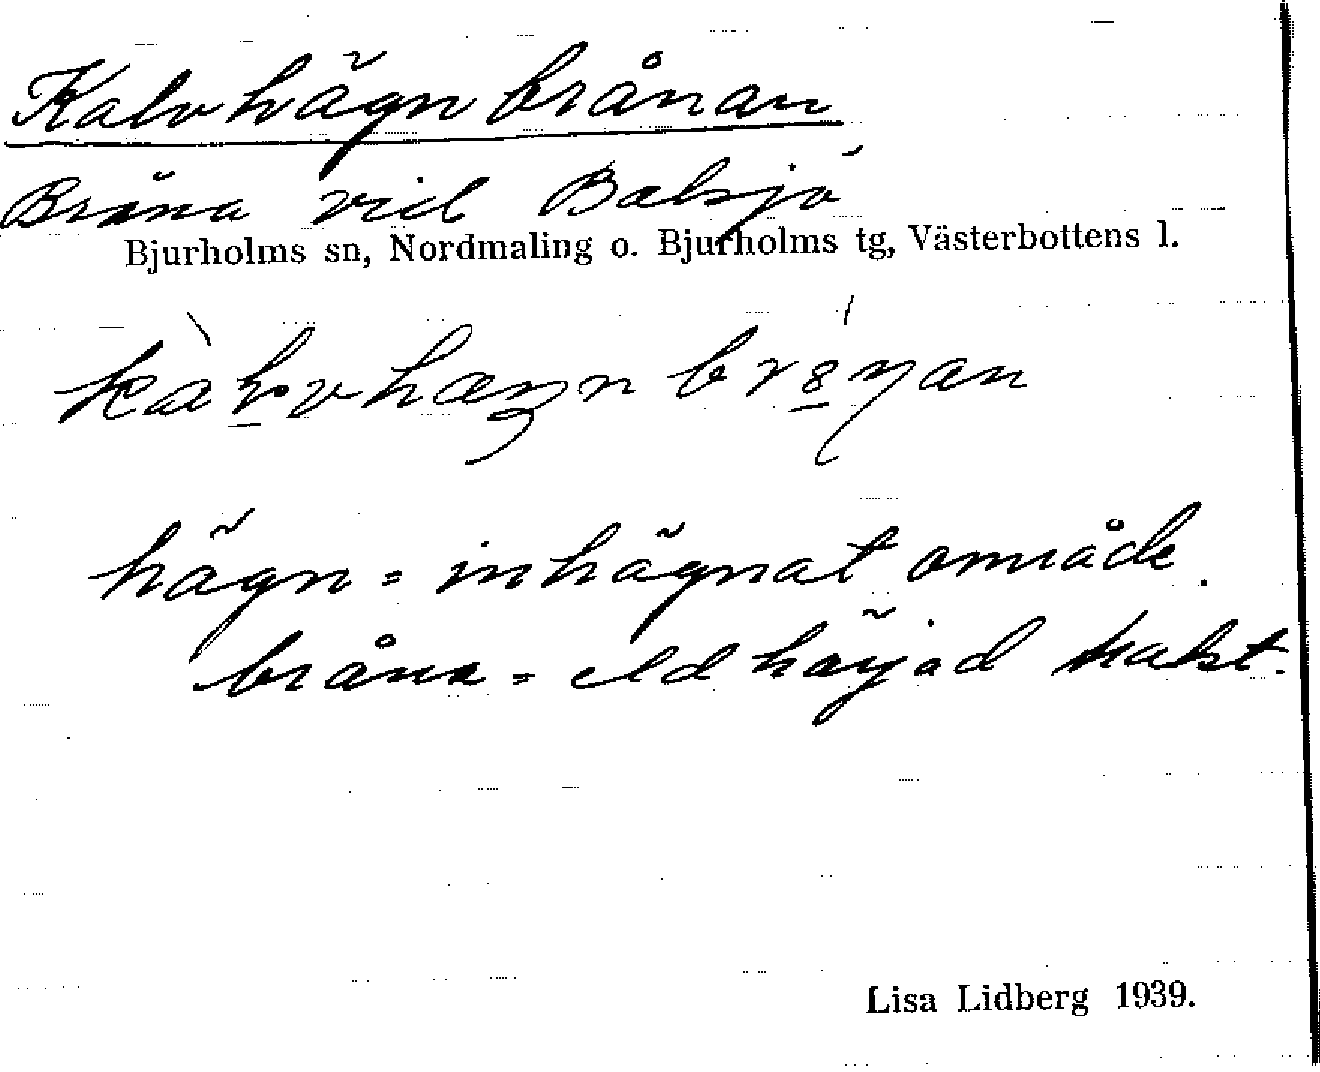 Kalvhägnbrånan
Bråna vid Balsjö
Bjurholms sn, Nordmaling o. Bjurholms tg, Västerbottens l.
hägn = inhägnat område.
bråna = eldhärjad trakt.
Lisa Lidberg 1939.